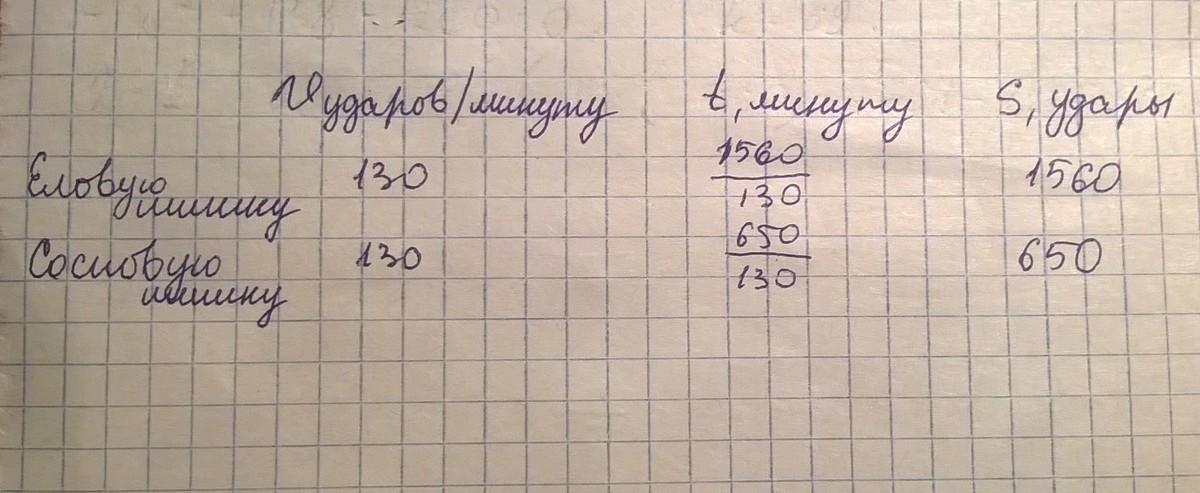 V ударов/минуту t, минуту S, удары
Еловую 130 1560/130 1560
шишку
Сосновую 130 650/130 650
шишку